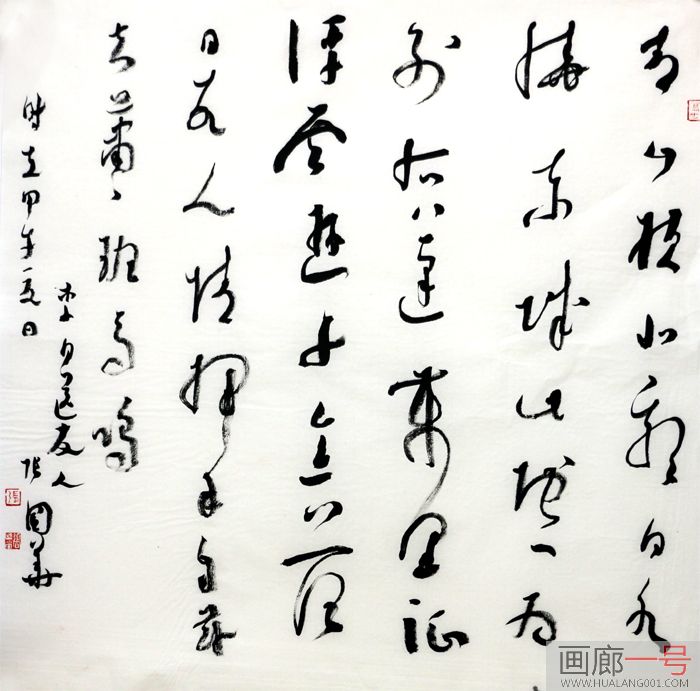 青山横北郭白水
绕东城此地一为
别孤蓬万里征
浮云游子意落
日故人情挥手自兹
去萧〻班马鸣
时在甲午夏日
李白送友人
张國華
画廊一号
WWW.HUALANG001.COM